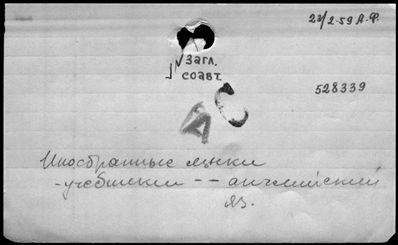 23/2-59 А.Ф.
√ Загл.
√ соавт.
528339
Иностранные языки
-учебники -- английский
яз.